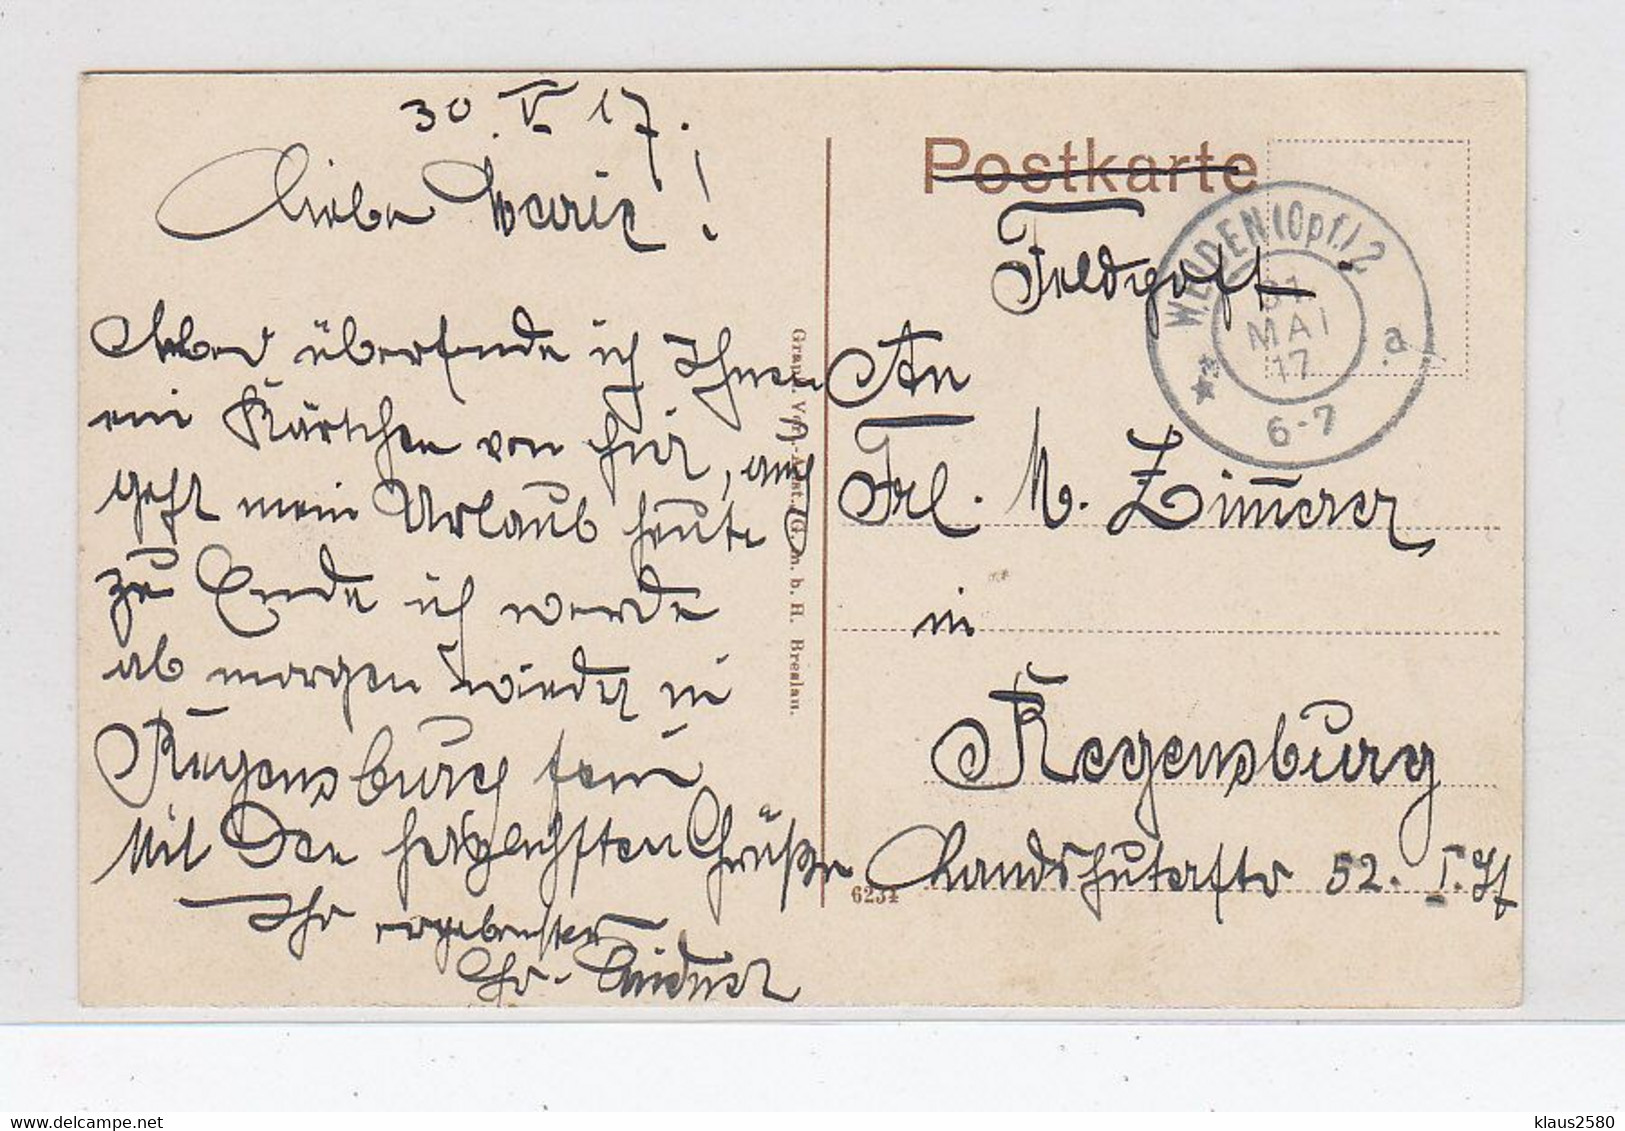 30. V. 17.
Liebe Marie!
übersende ich Ihnen
ein Kärtchen von hier, auch
geht mein Urlaub heute
zu Ende ich werde
ab morgen wieder in
Regensburg sein
Mit den herzlichsten Grüße
Ihr ergebenster
Postkarte
Feldpost
An
Frl. M. Zimmerer
in
Regensburg
Landshuterstr 52. I. St
WEIDEN (Opf.) 2
31
MAI
17
a
6-7
6234
m. b. H. Breslau.
klaus2580